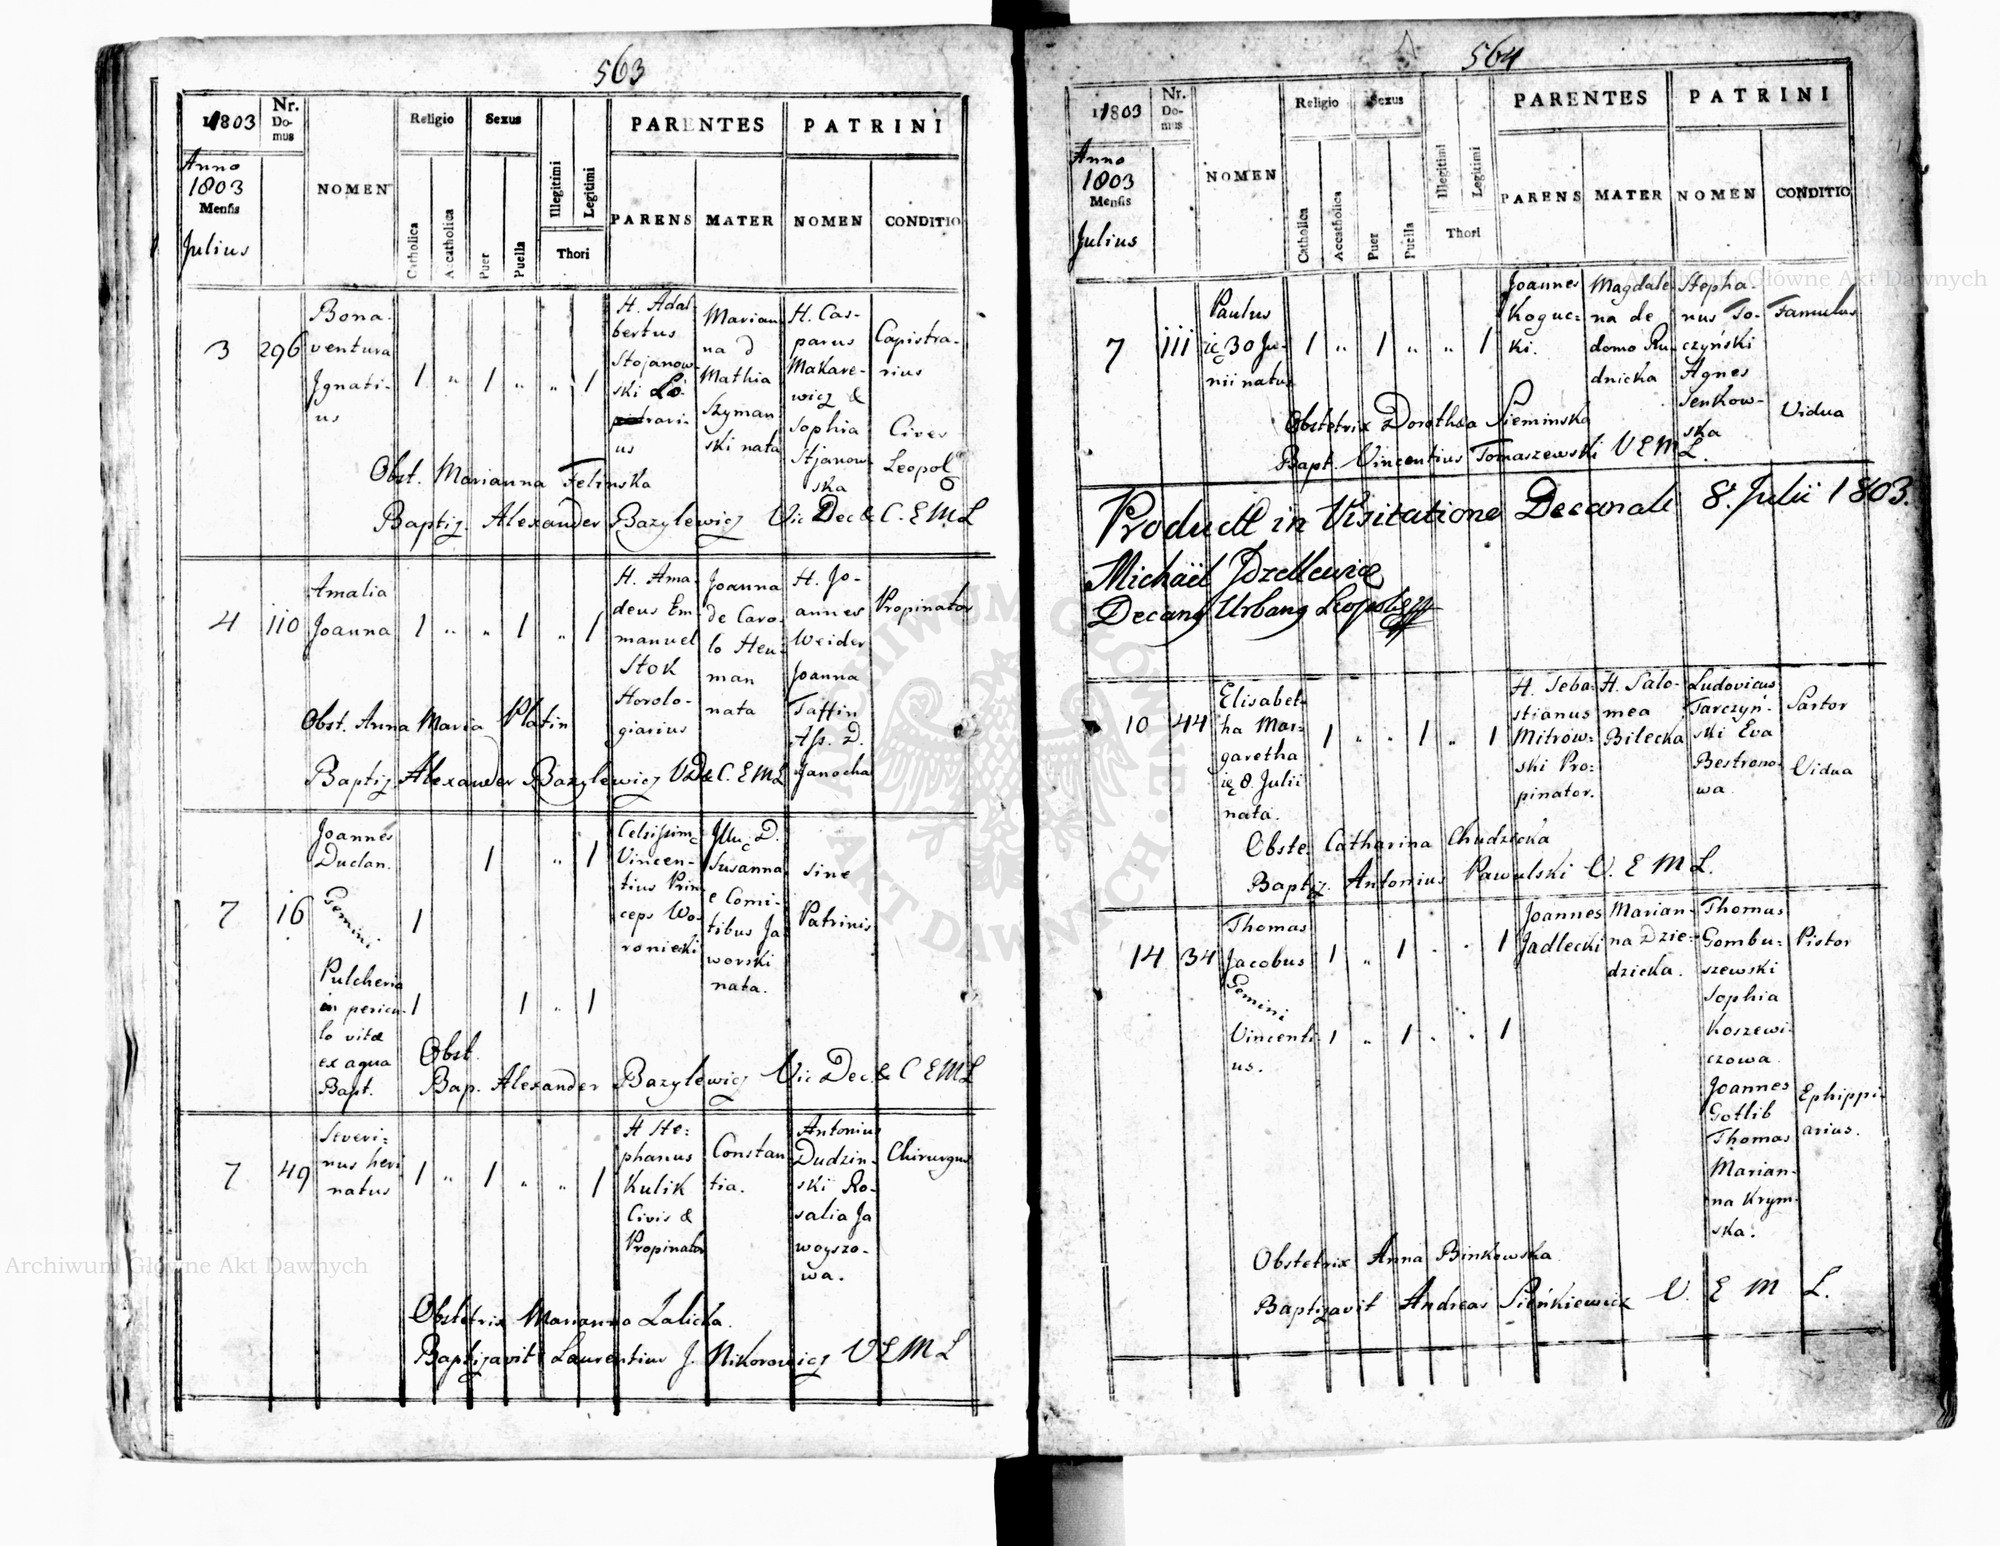 563
1803
Nr. Domus
NOMEN
Religio
Sexus
Illegitimi
Legitimi
PARENTES
PATRINI
Anno
1803
Mensis
Julius
Catholica
Accatholica
Puer
Puella
Thori
PARENS
MATER
NOMEN
CONDITIO
3
296
Bona-
ventura
Ignati-
us
1 " 1 " " 1
H. Adal
bertus
Stojanow-
ski
us
Marian
na D
Mathia
Szyman
ski nata
H. Cas-
parus
Makare-
wicz &
Sophia
Stjanow-
ska
Capistra-
rius
Cives
Leopol
Obst. Marianna Felinska
Baptiz. Alexander Bazylewicz Vic Dec & C. E M L
4
110
Amalia
Joanna
1 " " 1 " 1
H. Ama-
deus Em-
manuel
Stok
Horolo-
giarius
Joanna
de Caro-
lo Heu-
man
nata
H. Jo-
annes
Weider
Joanna
Taffin
Ass. D.
Janocha
Propinator
Obst. Anna Maria Platin
Baptiz. Alexander Bazylewicz V D & C. E M L
7
16
Joannes
Duclan.
Gemini
Pulcheria
in pericu-
lo vitæ
ex aqua
Bapt.
1 1 " 1
1 1 " 1
Celsissim
Vincen-
tius Prin
ceps Wo-
roniecki
Illu. D.
Susanna
e Comi-
tibus Ja
worski
nata.
sine
Patrinis
Obst.
Bap. Alexander Bazylewicz Vic Dec. & C E M L
7
49
Severi-
nus heri
natus
1 " 1 " " 1
H Ste-
phanus
Kulik
Civis &
Propinator
Constan
tia.
Antonius
Dudzin-
ski Ro-
salia Ja
woyszo-
wa.
Chirurgus
Obstetrix Marianna Lalicka.
Baptizavit Laurentius J. Nikorowicz V E M L
564
1803
Nr. Domus
NOMEN
Religio
Sexus
Illegitimi
Legitimi
PARENTES
PATRINI
Anno
1803
Mensis
Julius
Catholica
Accatholica
Puer
Puella
Thori
PARENS
MATER
NOMEN
CONDITIO
7
111
Paulus
ię 30 Ju-
nii natus
1 " 1 " " 1
Joannes
Koguc-
ki.
Magdale-
na de
domo Ru-
dnicka
Stepha-
nus To-
czyński
Agnes
Senkow-
ska
Famulus
Vidua
Obstetrix Dorothea Sieminska
Bapt. Vincentius Tomaszewski V E M L.
Product in Visitatione Decanali 8. Julii 1803.
Michaël
Decang Urbang Leopol
10
44
Elisabet-
ha Mar-
garetha
ię 8. Julii
nata.
1 " " 1 " 1
H. Seba-
stianus
Mitrów-
ski Pro-
pinator.
H. Salo-
mea
Bilecka
Ludovicus
Tarczyn-
ski Eva
Bestrono-
wa.
Sartor
Vidua
Obste. Catharina Chudzicka
Baptiz. Antonius Pawulski V. E M L.
14
34
Thomas
Jacobus
Gemini
Vincenti-
us.
1 " 1 " " 1
1 " 1 " " 1
Joannes
Jadlecki
Marian-
na Dzie-
dzicka.
Thomas
Gombu-
szewski
Sophia
Koszewi-
czowa.
Joannes
Gotlib
Thomas
Marian-
na Krym-
ska.
Pistor
Ephippi-
arius.
Obstetrix Anna Binkowska
Baptizavit Andreas Sieńkiewicz V. E M L.
Archiwum Główne Akt Dawnych
Archiwum Główne Akt Dawnych
ARCHIWUM GŁÓWNE AKT DAWNYCH